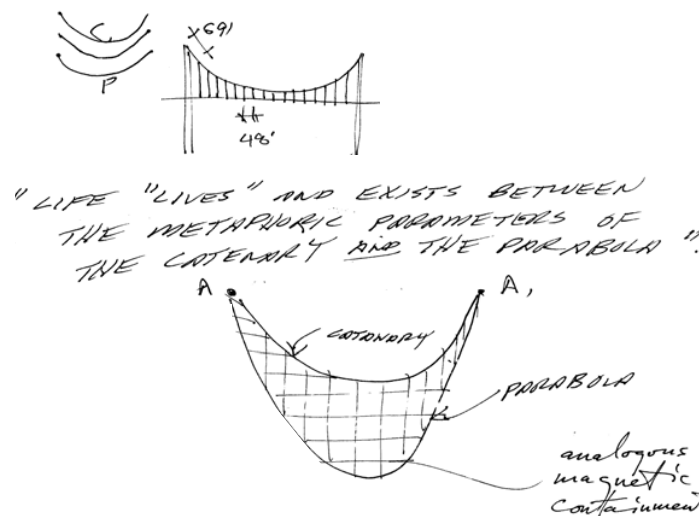 C
P
69'
48'
"LIFE "LIVES" AND EXISTS BETWEEN
THE METAPHORIC PARAMETERS OF
THE CATENARY AND THE PARABOLA".
A A,
CATONARY
PARABOLA
analogous
magnetic
containmen